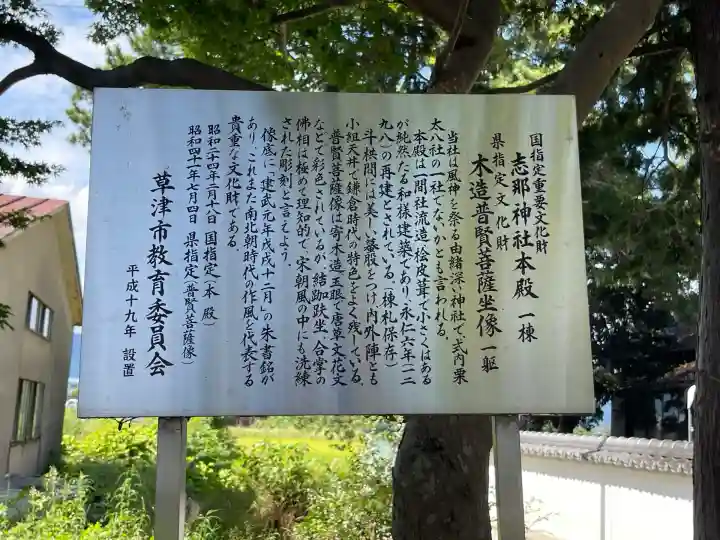 国指定重要文化財
志那神社本殿 一棟
県指定文化財
木造普賢菩薩坐像 一躯
当社は風神を祭る由緒深い神社で、式内栗
太八社の一社でないかとも言われる。
本殿は一間社流造、桧皮葺で小さくはある
が純然たる和様建築であり、永仁六年(一二
九八)の再建とされている。(棟札保存)
斗栱間には美しい蟇股をつけ、内外陣とも
小組天井で鎌倉時代の特色をよく残している。
普賢菩薩像は寄木造、玉眼で唐草文、花文
などで彩色されているが、結跏趺坐、合掌の
佛相は極めて理知的で、宋朝風の中にも洗練
された彫刻と言えよう。
像底に、建武元年戊戌十二月の朱書銘が
あり、これまた南北朝時代の作風を代表する
貴重な文化財である。
昭和二十四年二月十八日 国指定(本殿)
昭和四十一年七月四日 県指定(普賢菩薩像)
草津市教育委員会
平成十九年 設置